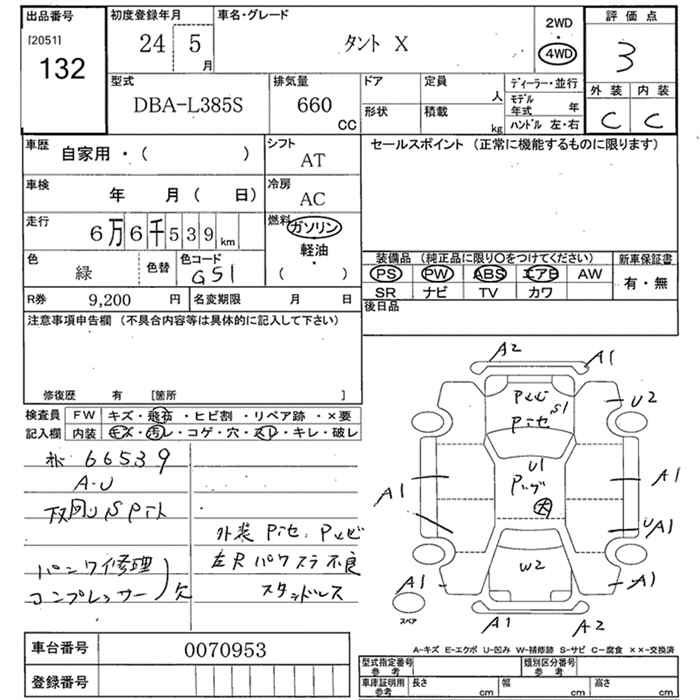 出品番号
[2051]
132
初度登録年月
24 5 月
車名・グレード
タント X
2WD
4WD
評価点
3
外装 内装
C C
型式
DBA-L385S
排気量
660 CC
ドア
形状
定員 人
積載 kg
ディーラー・並行
モデル年式 年
ハンドル 左・右
車歴
自家用・( )
シフト
AT
セールスポイント (正常に機能するものに限ります)
車検 年 月 ( 日)
冷房
AC
走行
6万6千539km
燃料
ガソリン
軽油・
( )
色
緑
色替
色コード
G51
装備品 (純正品に限り〇をつけてください)
PS PW ABS エアB AW
SR ナビ TV カワ
新車保証書
有・無
R券 9,200 円
名変期限 月 日
後日品
注意事項申告欄 (不具合内容等は具体的に記入して下さい)
修復歴 有 [箇所 ]
検査員記入欄
FW キズ・飛石・ヒビ割・リペア跡・×要
内装 キズ・汚レ・コゲ・穴・スレ・キレ・破レ
66539
A-U
下廻りS
パンク修理
コンプレッサー)欠
外装
左R パワスラ不良
スタッドレス
A2
A1
S1
U2
U1
A1
A1
A1
W2
A1
A1
A1
A2
スペア
A-キズ E-エクボ U-凹み W-補修跡 S-サビ C-腐食 ××-交換済
車台番号 0070953
登録番号
型式指定番号 参考
類別区分番号 参考
車庫証明用 参考
長さ cm
幅 cm
高さ cm